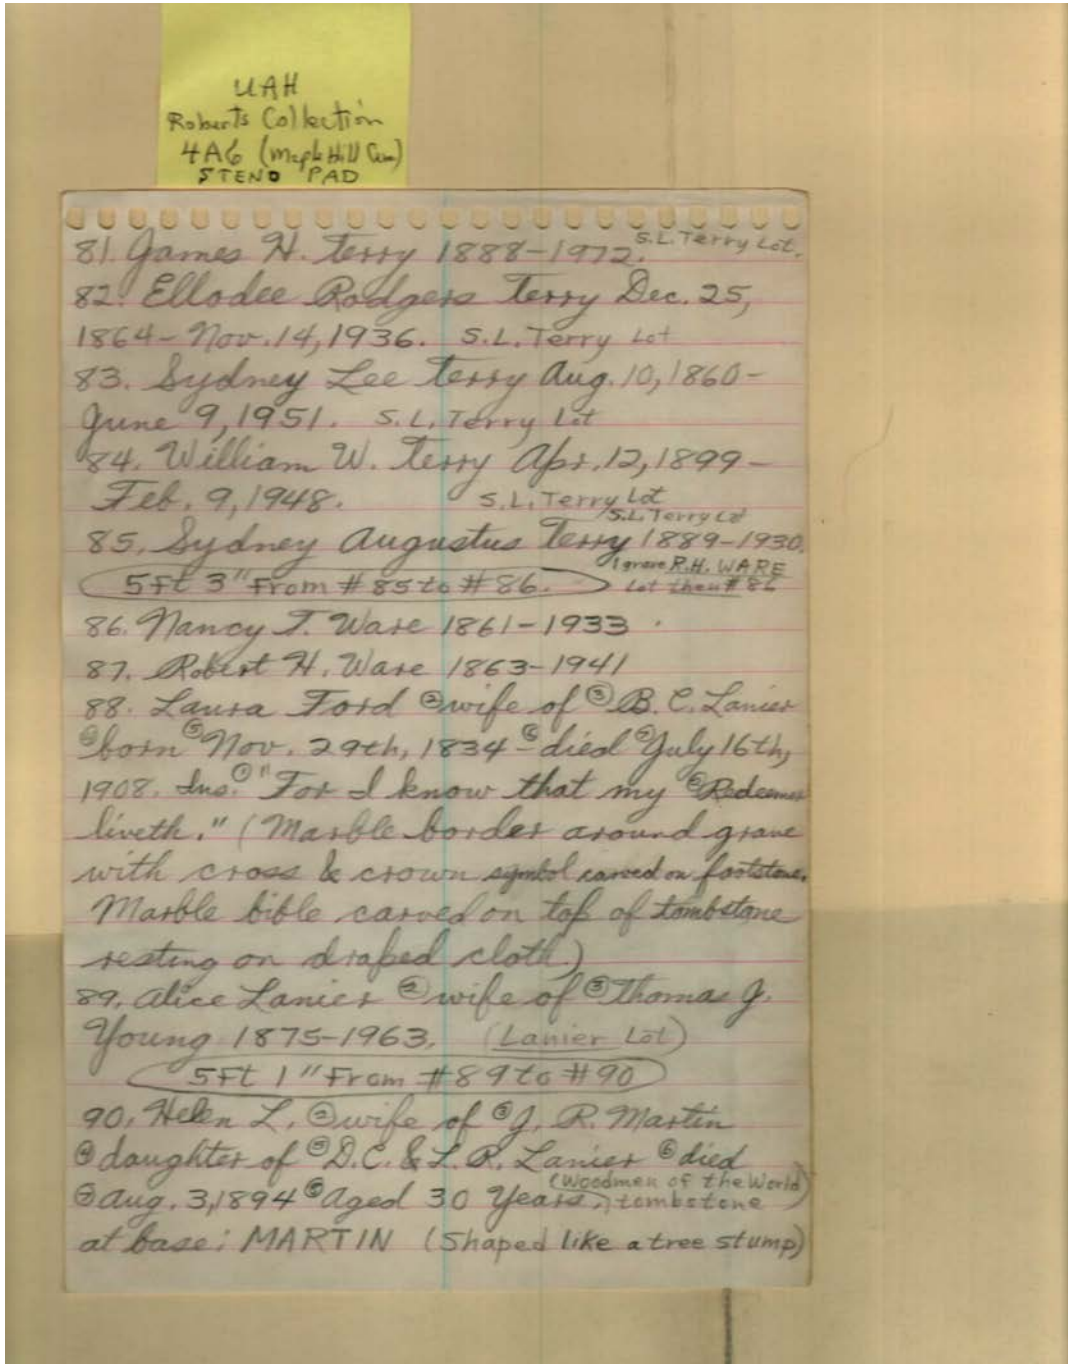 UAH
Roberts Collection
4A6 (Maple Hill Cem)
STENO PAD
81. James H. Terry 1888-1972. S.L. Terry Lot.
82. Ellodee Rodgers Terry Dec. 25,
1864-Nov. 14, 1936. S.L. Terry Lot
83. Sydney Lee Terry Aug. 10, 1860-
June 9, 1951. S.L. Terry Lot
84. William W. Terry Apr. 12, 1899-
Feb. 9, 1948. S.L. Terry Lot
S.L. Terry Lot
85. Sydney Augustus Terry 1889-1930.
1 grave R.H. WARE
5Ft 3" From #85 to #86. Lot then #86
86. Nancy T. Ware 1861-1933
87. Robert H. Ware 1863-1941
88. Laura Ford ② wife of ③ B.C. Lanier
④ born ⑤ Nov. 29th, 1834-⑥ died ⑦ July 16th,
1908. Ins. ① "For I know that my ② Redeemer
liveth." (Marble border around grave
with cross & crown symbol carved on footstone.
Marble bible carved on top of tombstone
resting on draped cloth.)
89. Alice Lanier ② wife of ③ Thomas J.
Young 1875-1963. (Lanier Lot)
5Ft 1" From #89 to #90
90. Helen L. ② wife of ③ J. R. Martin
④ daughter of ⑤ D.C. & L.R. Lanier ⑥ died
⑦ Aug. 3, 1894 ⑧ Aged 30 Years. (Woodmen of the World tombstone)
at base: MARTIN (Shaped like a tree stump)